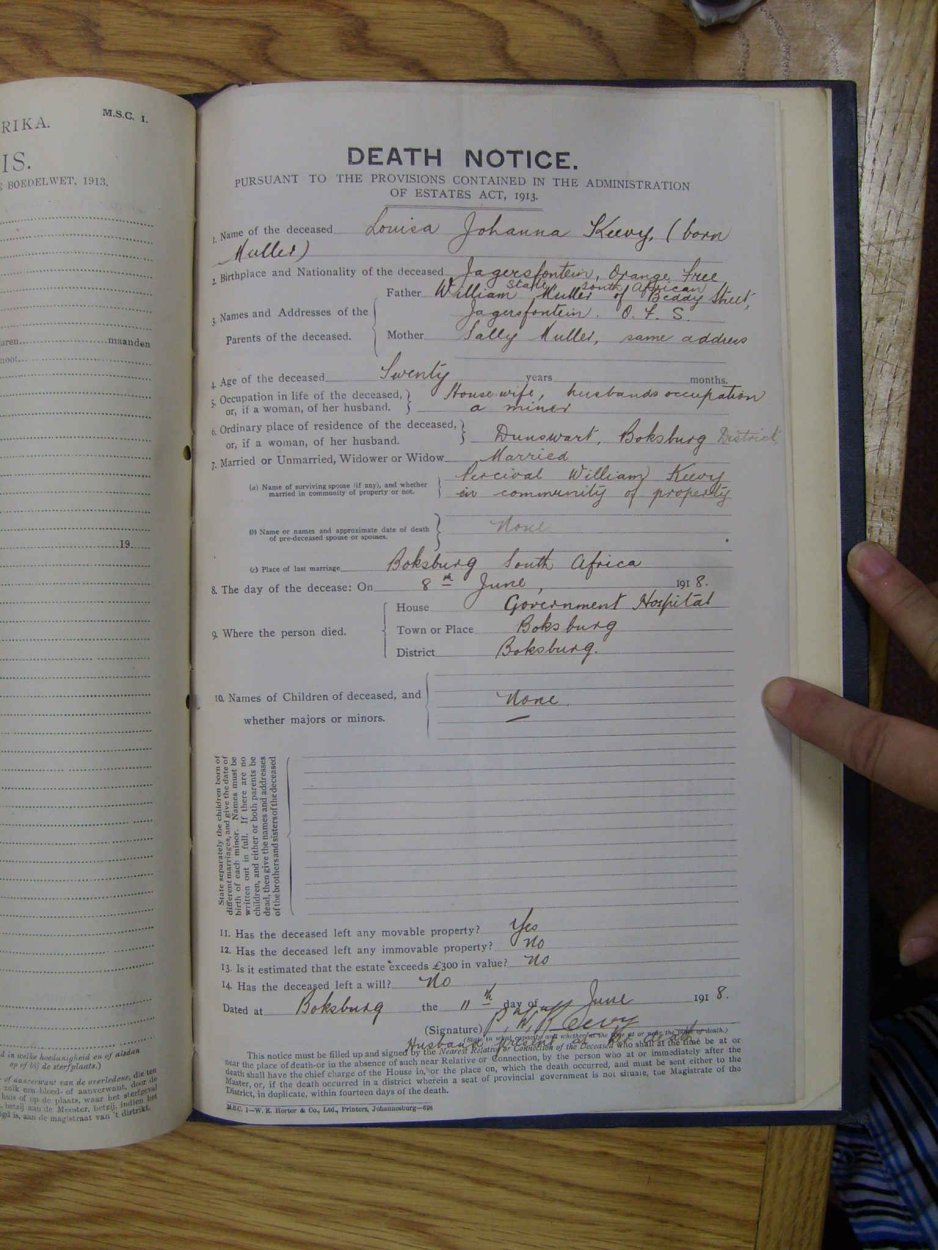 RIKA.
M.S.C. 1.
IS.
BOEDELWET, 1913.
maanden
19
DEATH NOTICE.
PURSUANT TO THE PROVISIONS CONTAINED IN THE ADMINISTRATION
OF ESTATES ACT, 1913.
1. Name of the deceased Louisa Johanna Keevy, (born
Muller)
2. Birthplace and Nationality of the deceased Jagersfontein, Orange Free
State South African
3. Names and Addresses of the Parents of the deceased.
Father William Muller of Beddy Street,
Jagersfontein. O. F. S.
Mother Sally Muller, same address
4. Age of the deceased Twenty years months.
5. Occupation in life of the deceased, Housewife, husbands occupation
or, if a woman, of her husband. a miner
6. Ordinary place of residence of the deceased,
or, if a woman, of her husband. Dunswart, Boksburg District
7. Married or Unmarried, Widower or Widow Married
(a) Name of surviving spouse (if any), and whether Percival William Keevy
married in community of property or not. in community of property
(b) Name or names and approximate date of death None
of pre-deceased spouse or spouses.
(c) Place of last marriage Boksburg South Africa
8. The day of the decease: On 8th June, 1918.
9. Where the person died.
House Government Hospital
Town or Place Boksburg
District Boksburg.
10. Names of Children of deceased, and None.
whether majors or minors.
State separately the children born of
different marriages, and give the date of
birth of each minor. Names must be
written out in full. If there are no
children, and either or both parents be
dead, then give the names and addresses
of the brothers and sisters of the deceased
11. Has the deceased left any movable property? Yes
12. Has the deceased left any immovable property? No
13. Is it estimated that the estate exceeds £300 in value? No
14. Has the deceased left a will? No
Dated at Boksburg the 11th day of June 1918.
(Signature) P. W. Keevy
Husband
This notice must be filled up and signed by the Nearest Relative or Connexion of the Deceased who shall at the time be at or
near the place of death or in the absence of such near Relative or Connexion, by the person who at or immediately after the
death shall have the chief charge of the House in, or the place on, which the death occurred, and must be sent either to the
Master, or, if the death occurred in a district wherein a seat of provincial government is not situate, the Magistrate of the
District, in duplicate, within fourteen days of the death.
M.S.C. 1—W. E. Hortor & Co., Ltd., Printers, Johannesburg—